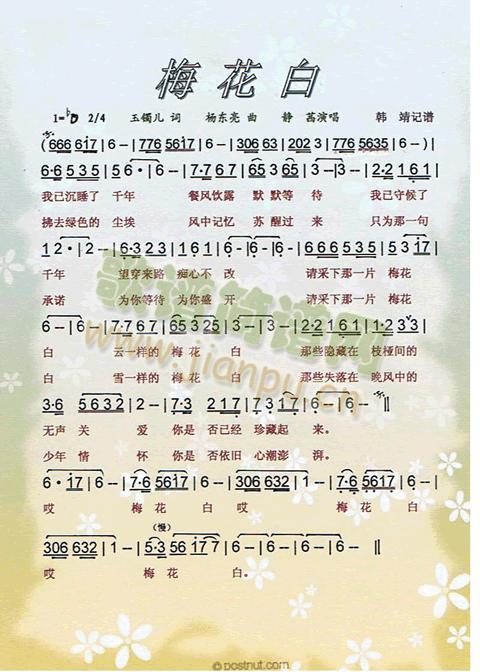 梅花白
1=♭D 2/4 玉镯儿 词 杨东亮 曲 静 茗演唱 韩 靖记谱
(666 617 | 6 - | 776 5617 | 6 - | 306 63 | 202 3 | 776 5635 | 6 - - ) |
6·6 535 | 56· | 6 - | 7·67 | 653 53 | 3 - | 3 - | 2·2 161 |
我已沉睡了 千年 餐风饮露 默默等 待 我已守候了
拂去绿色的 尘埃 风中记忆 苏醒过 来 只为那一句
12· | 2 - - | 6·323 | 161 | 6 - | 6 - | 6 - | 666535 | 53 17 |
千年 望穿来路 痴心不 改 请采下那一片 梅花
承诺 为你等待 为你盛 开 请采下那一片 梅花
6 - - | 6 - | 7·767 | 65325 | 3 - | 3 - | 1·2 2161 | 1·2 33 |
白 云一样的 梅花 白 那些隐藏在 枝桠间的
白 雪一样的 梅花 白 那些失落在 晚风中的
3·6 5632 | 2 - - | 7·3 217 | 7317 | 6 - | 6 - -
无声 关 爱 你是 否已经 珍藏起 来。
少年 情 怀 你是 否依旧 心潮澎 湃。
6·17 | 6 - - | 7·6 5617 | 6 - - | 306 632 | 1 - - | 7·6 5617 | 6 - - |
哎 梅花 白 哎 梅花 白
(慢)
306 632 | 1 - | 5·3 56 17 7 | 6 - | 6 - | 6 - | 6 - -
哎 梅花 白。
歌谱简谱网
www.jianpu.cn
© postnut.com